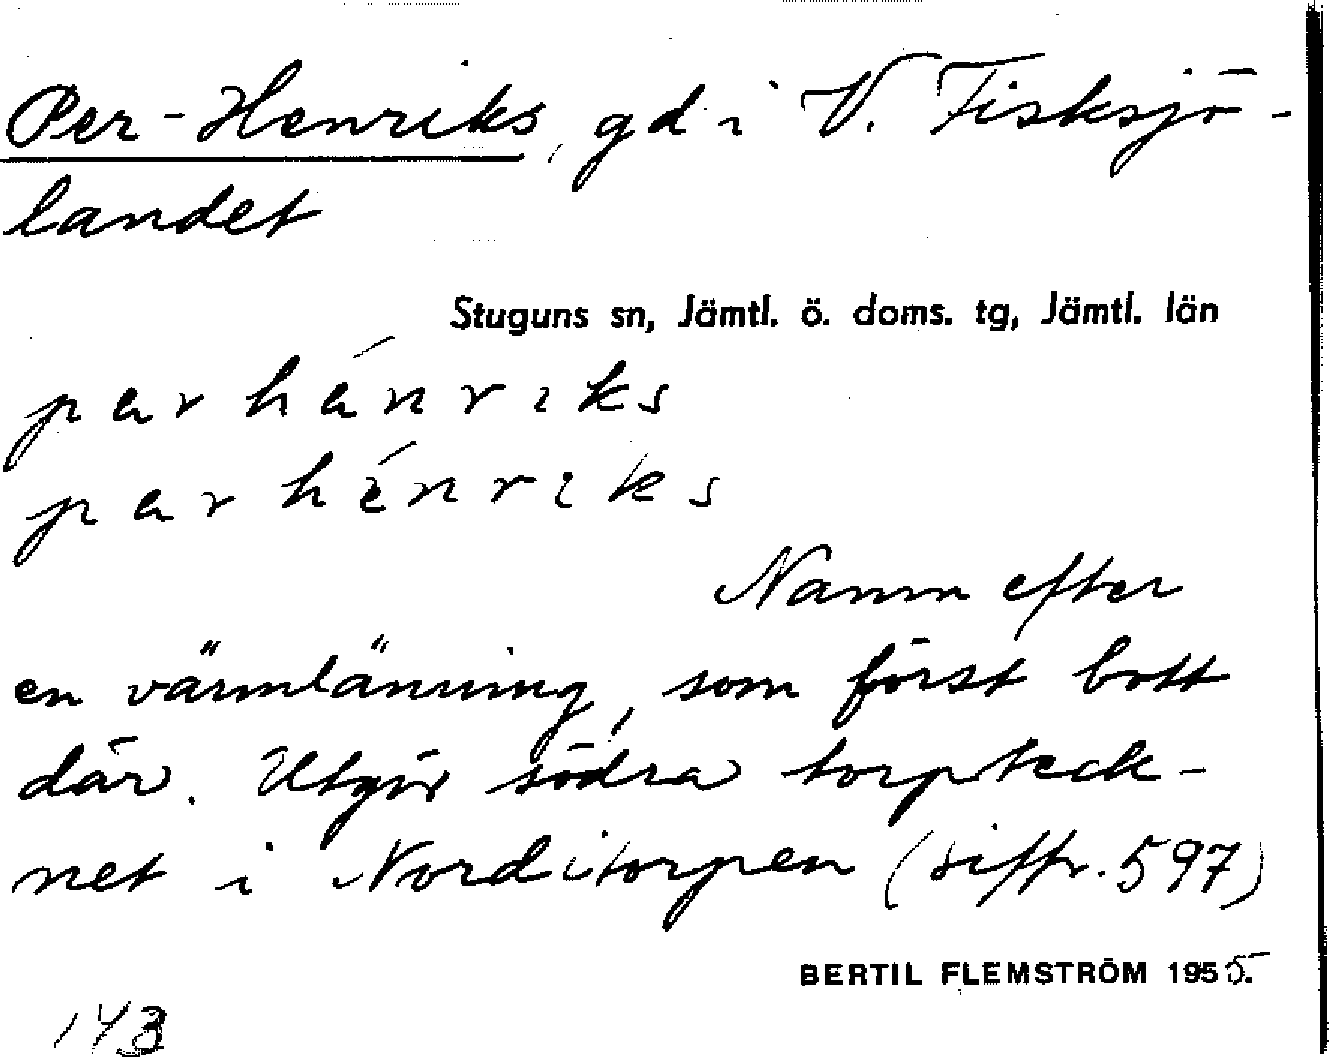 Per-Henriks, gd i V. Fisksjö-
landet
Stuguns sn, Jämtl. ö. doms. tg, Jämtl. län
parhánriks
parhénriks
Namn efter
en värmlänning, som först bott
där. Utgör södra torpteck-
net i Norditorpen (siffr. 597)
BERTIL FLEMSTRÖM 1955.
143